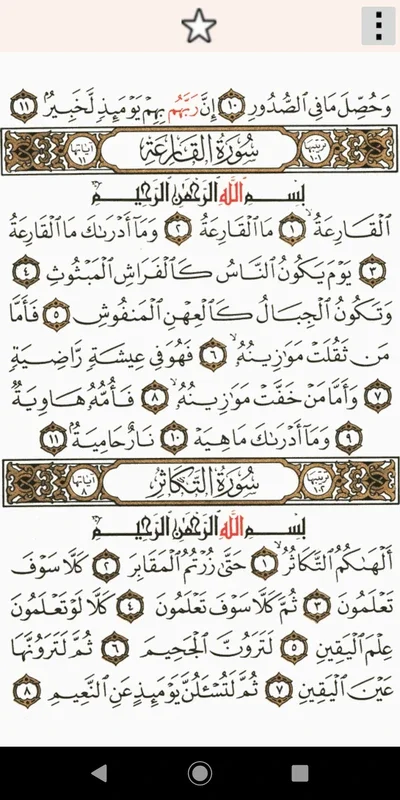 وَحُصِّلَ مَا فِي ٱلصُّدُورِ ١٠ إِنَّ رَبَّهُم بِهِمۡ يَوۡمَئِذٖ لَّخَبِيرُۢ ١١
ترتيبها ١٠١ سُورَةُ القَارِعَة آياتها ١١
بِسۡمِ ٱللَّهِ ٱلرَّحۡمَٰنِ ٱلرَّحِيمِ
ٱلۡقَارِعَةُ ١ مَا ٱلۡقَارِعَةُ ٢ وَمَآ أَدۡرَىٰكَ مَا ٱلۡقَارِعَةُ
٣ يَوۡمَ يَكُونُ ٱلنَّاسُ كَٱلۡفَرَاشِ ٱلۡمَبۡثُوثِ ٤
وَتَكُونُ ٱلۡجِبَالُ كَٱلۡعِهۡنِ ٱلۡمَنفُوشِ ٥ فَأَمَّا
مَن ثَقُلَتۡ مَوَٰزِينُهُۥ ٦ فَهُوَ فِي عِيشَةٖ رَّاضِيَةٖ
٧ وَأَمَّا مَنۡ خَفَّتۡ مَوَٰزِينُهُۥ ٨ فَأُمُّهُۥ هَاوِيَةٞ
٩ وَمَآ أَدۡرَىٰكَ مَا هِيَهۡ ١٠ نَارٌ حَامِيَةُۢ ١١
ترتيبها ١٠٢ سُورَةُ التَّكَاثُرِ آياتها ٨
بِسۡمِ ٱللَّهِ ٱلرَّحۡمَٰنِ ٱلرَّحِيمِ
أَلۡهَىٰكُمُ ٱلتَّكَاثُرُ ١ حَتَّىٰ زُرۡتُمُ ٱلۡمَقَابِرَ ٢ كَلَّا سَوۡفَ
تَعۡلَمُونَ ٣ ثُمَّ كَلَّا سَوۡفَ تَعۡلَمُونَ ٤ كَلَّا لَوۡ تَعۡلَمُونَ
عِلۡمَ ٱلۡيَقِينِ ٥ لَتَرَوُنَّ ٱلۡجَحِيمَ ٦ ثُمَّ لَتَرَوُنَّهَا
عَيۡنَ ٱلۡيَقِينِ ٧ ثُمَّ لَتُسۡـَٔلُنَّ يَوۡمَئِذٍ عَنِ ٱلنَّعِيمِ ٨